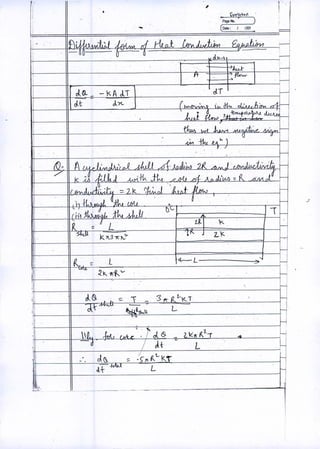 Page No.
Date
Differential form of Heat Conduction Equation
dx
A
Heat flow
dT
dQ/dt = -KA dT/dx
(moving in the direction of
heat flow, temperature decre
thus we have negative sign
in the eqⁿ)
Q. A cyclindrical shell of radius 2R and conductivity
K is filled with the core of radius = R and
conductivity = 2K. Find heat flow,
(i) through the core
(ii) through the shell
0°C
T
2R
K
R
2K
L
R shell = L / Kπ3πR²
R core = L / 2KπR²
dQ/dt shell = T / R shell = 3πR²KT / L
|||ly for core dQ/dt = 2KπR²T / L
∴ dQ/dt total = 5πR²KT / L